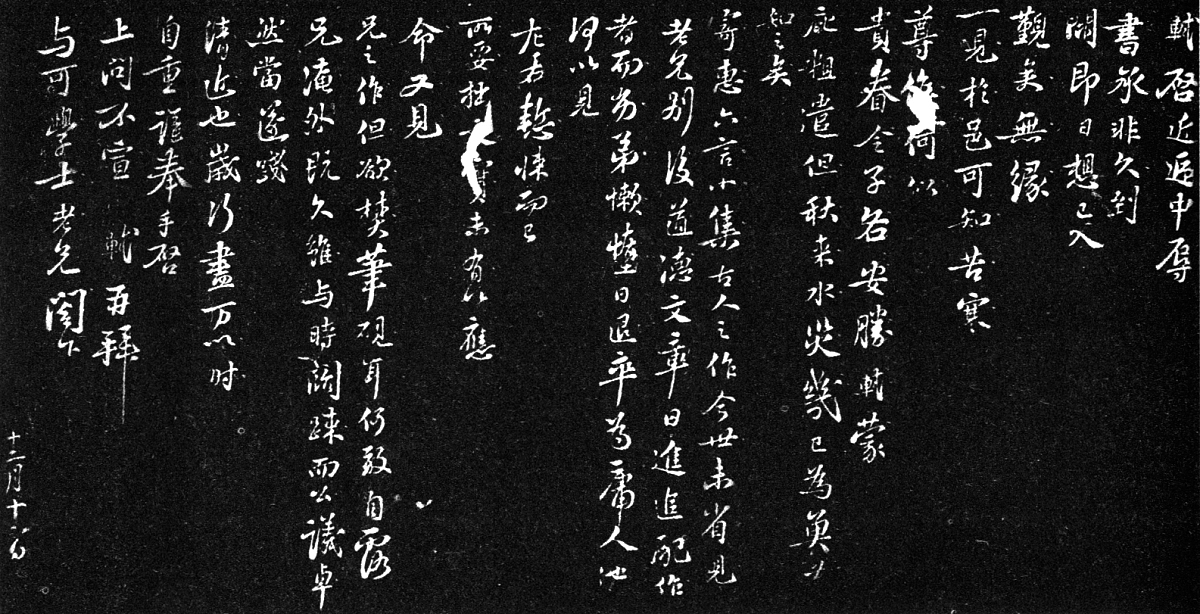 軾啓近遞中辱
書承非久到
闕即日想已入
覲矣無緣
一見於邑可知苦寒
尊候何似
貴眷令子各安勝軾蒙
庇粗遣但秋来水災幾已為魚必
知之矣
寄惠六言小集古人之作今世未省見
老兄別後道德文章日進追配作
者而劣弟懶惰日退卒為庸人他
日何以見
左右慙悚而已
所要拙文實未有以應
命又見
兄之作但欲焚筆硯耳何敢自露
兄淹外既久雖与時闊疎而公議卓
然當遂踐
清近也歲行盡万以时
自重謹奉手啓
上問不宣 軾再拜
与可學士老兄閣下
十二月十六日